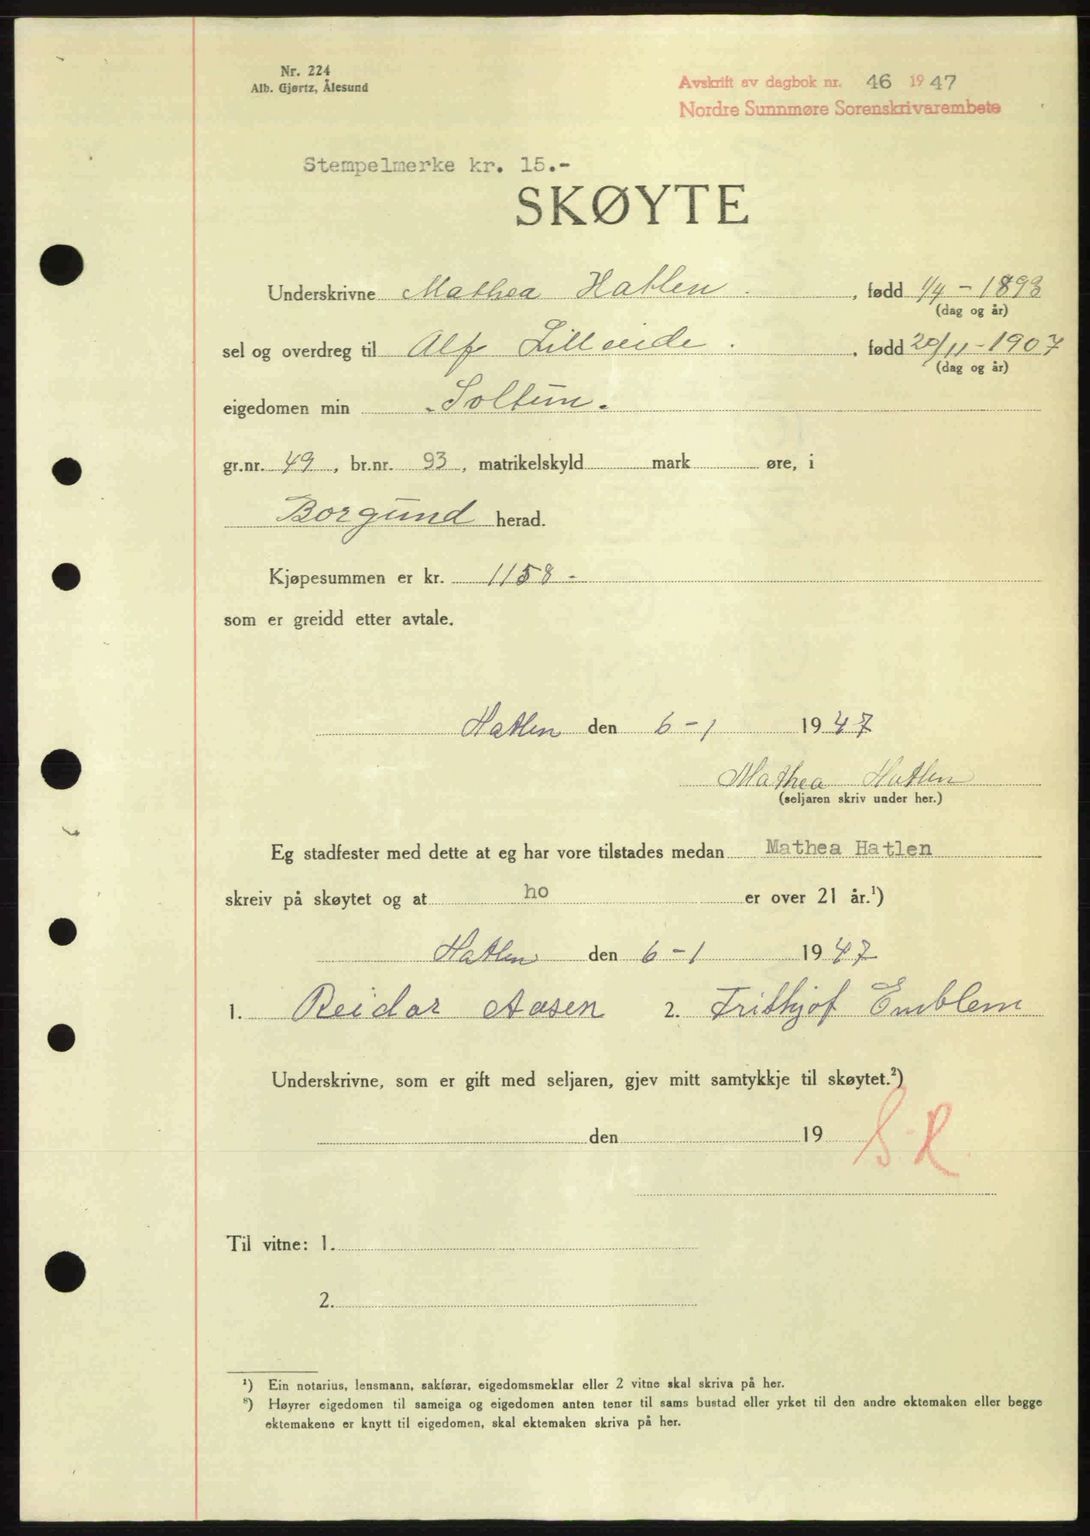 Nr. 224
Alb. Gjørtz, Ålesund
Avskrift av dagbok nr. 46 1947
Nordre Sunnmøre Sorenskrivarembete
Stempelmerke kr. 15.-
SKØYTE
Underskrivne Mathea Hatlen. , fødd 1/4 - 1893
(dag og år)
sel og overdreg til Alf Lilleeide. , fødd 20/11 - 1907
(dag og år)
eigedomen min "Soltun".
gr.nr. 49 , br.nr. 93 , matrikelskyld mark øre, i
Borgund herad.
Kjøpesummen er kr. 1158 -
som er greidd etter avtale.
Hatlen den 6-1 1947
Mathea Hatlen
(seljaren skriv under her.)
Eg stadfester med dette at eg har vore tilstades medan Mathea Hatlen
skreiv på skøytet og at ho er over 21 år.¹)
Hatlen den 6-1 1947
1. Reidar Aasen 2. Frithjof Emblem
Underskrivne, som er gift med seljaren, gjev mitt samtykkje til skøytet.²)
den 19
S.R.
Til vitne: 1.
2.
¹) Ein notarius, lensmann, sakførar, eigedomsmeklar eller 2 vitne skal skriva på her.
²) Høyrer eigedomen til sameiga og eigedomen anten tener til sams bustad eller yrket til den andre ektemaken eller begge
ektemakene er knytt til eigedomen, skal ektemaken skriva på her.